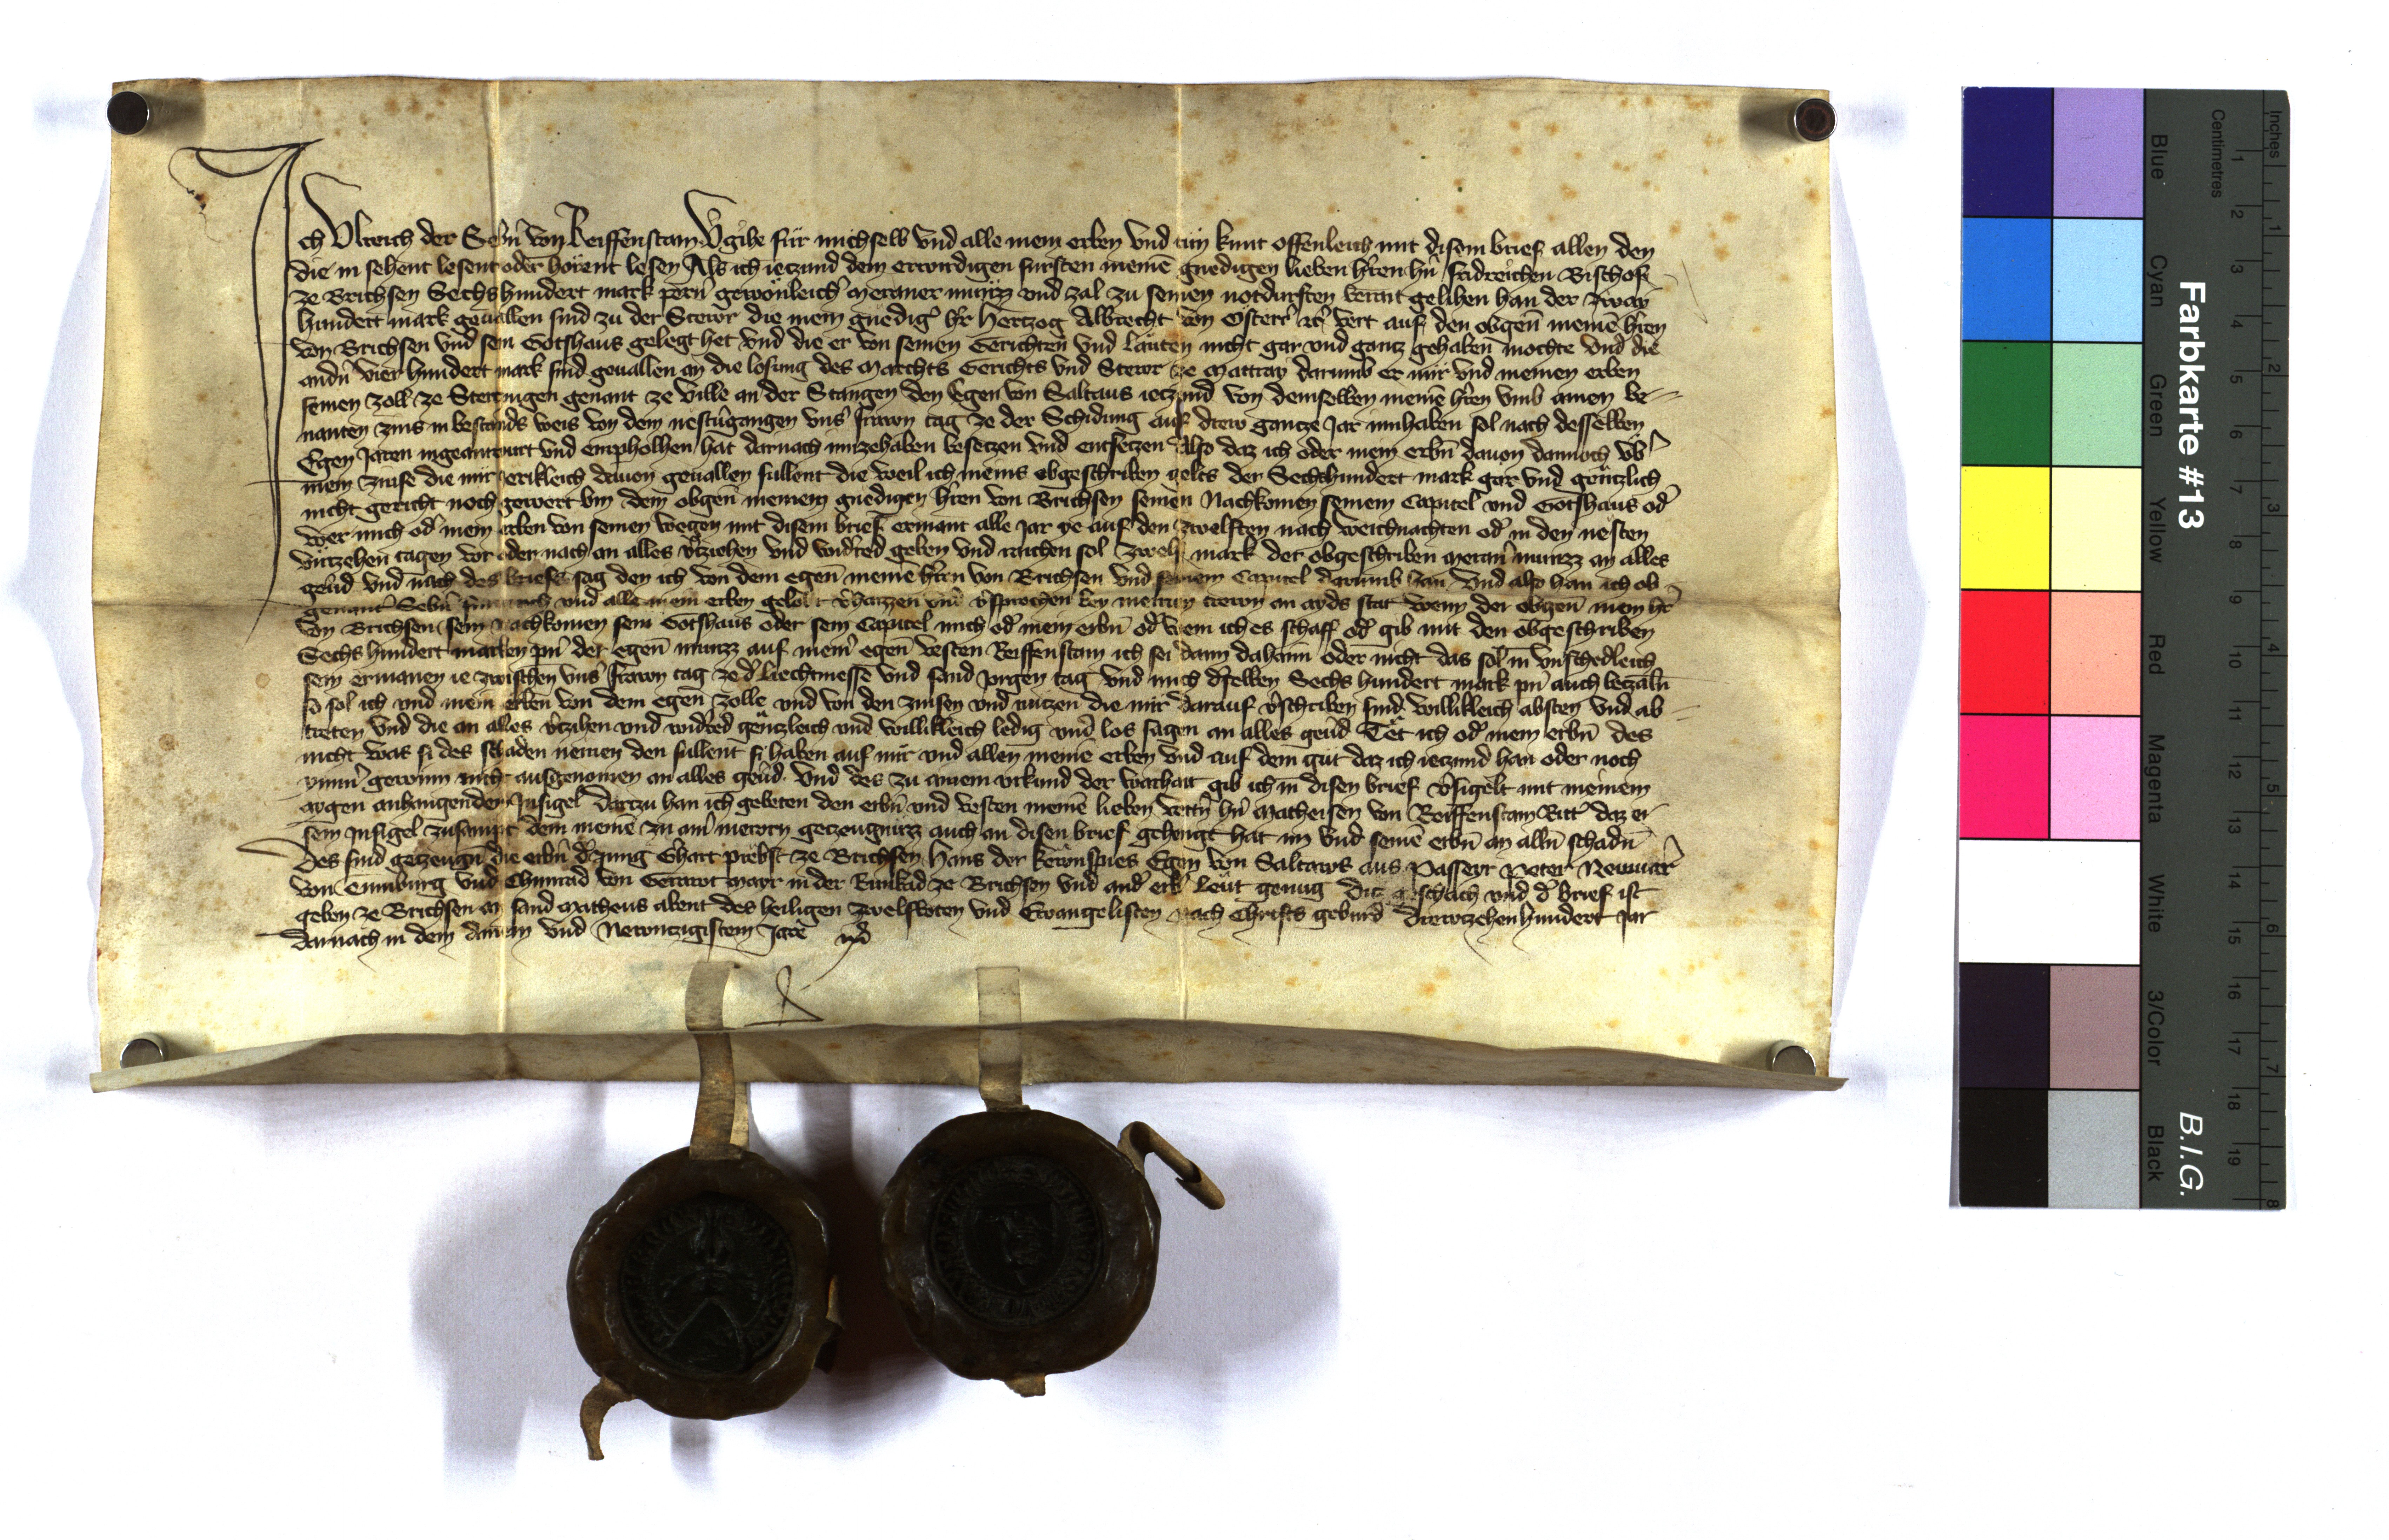 Ich Ulreich der Sebñ von Reiffenstain Vgihe für mich selb vnd alle mein erben vnd tün kunt offenleich mit disem brief allen den
die in sehent lesent oder hörent lesen Als ich ieczund dem erwirdigen fursten meinē gnedigen lieben h'ren hñ fridreichen Bischof
ze Brichsen Sechshundert mark pern' gewönleich' Meraner münzz vnd zal zu seinen notdurften berait gelihen han der zway
hundert mark geuallen sind zu der Stewr die mein gnedig' h'r Herczog Albrecht von Osterr' etc' vert auf den obgeñ meinē h'ren
von Brichsen vnd sein Gotshaus gelegt het vnd die er von seinen Gerichten vnd Läuten nicht gar vnd gancz gehaben mochte vnd die
andñ vier hundert mark sind geuallen an die losung des Marchts Gerichts vnd Stewr ze Mattray darumb er mir vnd meinen erben
seinen zoll ze Sterczingen genant ze Ville an der Stangen den Egen von Saltaus ieczund von demselben meinē h'ren vmb ainen be-
nanten zins in bestands weis von dem nestŭgangen vns' frawn tag ze der Schidung auf drew gancze Jar innhaben sol nach desselben
Egen Jaren ingeantwurt vnd empholhen hat darnach innzehaben besetzen vnd entsetzen Also daz ich oder mein erbñ dauon dannoch vb'
mein zinse die mir Jerikleich dauon geuallen sullent die weil ich meins obgeschriben gelts der Sechshundert mark gar vnd gäntzlich
nicht gericht noch gewert bin dem obgeñ meinem gnedigen h'ren von Brichsen seinen Nachkomen seinem Capitel vnd Gotshaus od'
wer mich od' mein erben von seinen wegen mit disem brief ermant alle Jar ye auf den zwelften nach weichnachten od' in den nesten
virtzehen tagen vor oder nach an alles v'cziehen vnd widred geben vnd raichen sol zwelf mark der obgeschriben Meran' münzz an alles
geu'd vnd nach des briefs sag den ich von dem egeñ meinē h'ren von Brichsen vnd seinem Capitel darumb han vnd also han ich ob-
genant' Sebñ für mich vnd alle mein erben gelobt v'haizzen vnd v'sprochen bey meinen trewn an ayds stat wenn der obgeñ mein h'r
von Brichsen sein Nachkomen sein Gotshaus oder sein Capitel mich od' mein erbñ od' wem ich es schaff od' gib mit den obgeschriben
Sechs hundert marken pñ der egeñ münzz auf mein' egeñ vesten Reiffenstain ich sei dann dahaim oder nicht das sol in vnschedleich
sein ermanen ie zwischen vns' frawn tag ze d' liechtmesse vnd sand Jorgen tag vnd mich d'selben Sechs hundert mark pñ auch beczalñ
so sol ich vnd mein erben von dem egeñ zolle vnd von den zinsen vnd nüczen die mir darauf v'schriben sind willikleich absten vnd ab-
treten vnd die an alles v'czihen vnd widred gänczleich vnd willikleich ledig vnd los sagen an alles geu'd Tet ich od' mein erbñ des
nicht was si des schaden nemen den sullent si haben auf mir vnd allen meinē erben vnd auf dem güt daz ich ieczund han oder noch
ymm' gewinn nicht ausgenomen an alles geu'd. Vnd des zu ainem vrkund der warhait gib ich in disen brief v'sigelt mit meinem
aygen anhangenden Insigel Darczu han ich gebeten den erbñ vnd vesten meinē lieben vettñ hñ Matheisen von Reiffenstain Ritt' daz er
sein Insigel zusampt dem meinē zu ain' merern geczeugnüzz auch an disen brief gehengt hat im vnd seinē erbñ an allñ schadñ
Des sind geczeugñ die erbñ d' Jung Ghart probst ze Brichsen Hans der Kewnspies Egen von Saltaws aus Passeyr Peter Newnar'
von Emmburg vnd Chunrad von Gerawt mayr in der Runkad ze Brichsen vnd and' erb' leut genug Dicz geschach vnd d' brief ist
geben ze Brichsen an sand Matheus abent des heiligen zwelfboten vnd Ewangelisten nach Christs geburd drewtzehenhundert Jar
darnach in dem ainem vnd Newnczigistem Jare
Farbkarte #13
B.I.G.
Blue Cyan Green Yellow Red Magenta White 3/Color Black
Centimetres 1 2 3 4 5 6 7 8 9 10 11 12 13 14 15 16 17 18 19
Inches 1 2 3 4 5 6 7 8